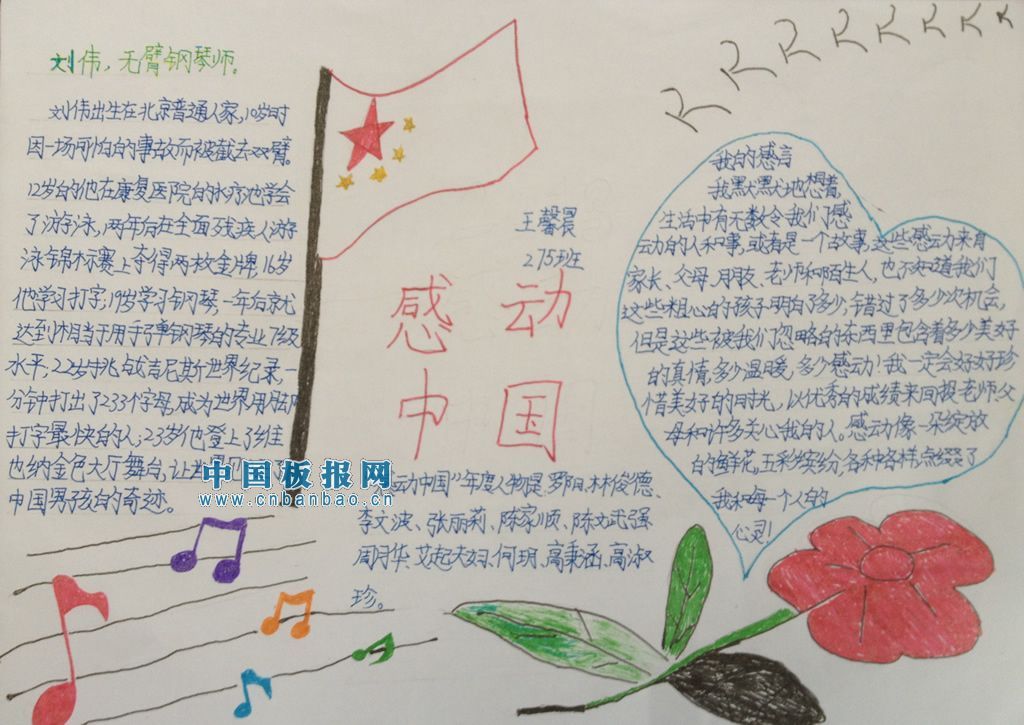 刘伟，无臂钢琴师。
刘伟出生在北京普通人家，10岁时
因一场可怕的事故而被截去双臂。
12岁的他在康复医院的水疗池学会
了游泳，两年后在全面残疾人游
泳锦标赛上夺得两枚金牌，16岁
他学习打字，19岁学习钢琴，一年后就
达到相当于用手弹钢琴的专业7级
水平，22岁挑战吉尼斯世界纪录，一
分钟打出了233个字母，成为世界用脚
打字最快的人；23岁他登上了维
也纳金色大厅舞台，让世界
中国男孩的奇迹。
王馨晨
275班
感动
中国
动中国"年度人物是：罗阳、林俊德、
李文波、张丽莉、陈家顺、陈斌强
周月华、艾起夫妇、何玥、高秉涵、高淑
珍。
我的感言
我默默地想着，
生活中有无数令我们感
动的人和事，或者是一个故事，这些感动来自
家长、父母、朋友、老师和陌生人，也不知道我们
这些粗心的孩子明白了多少，错过了多少次机会，
但是这些被我们忽略的东西里包含着多少美好
的真情，多少温暖，多少感动！我一定会好好珍
惜美好的时光，以优秀的成绩来回报老师父
母和许多关心我的人。感动像一朵绽放
的鲜花，五彩缤纷，各种各样，点缀了
我和每一个人的
心灵！
中国板报网
www.cnbanbao.cn